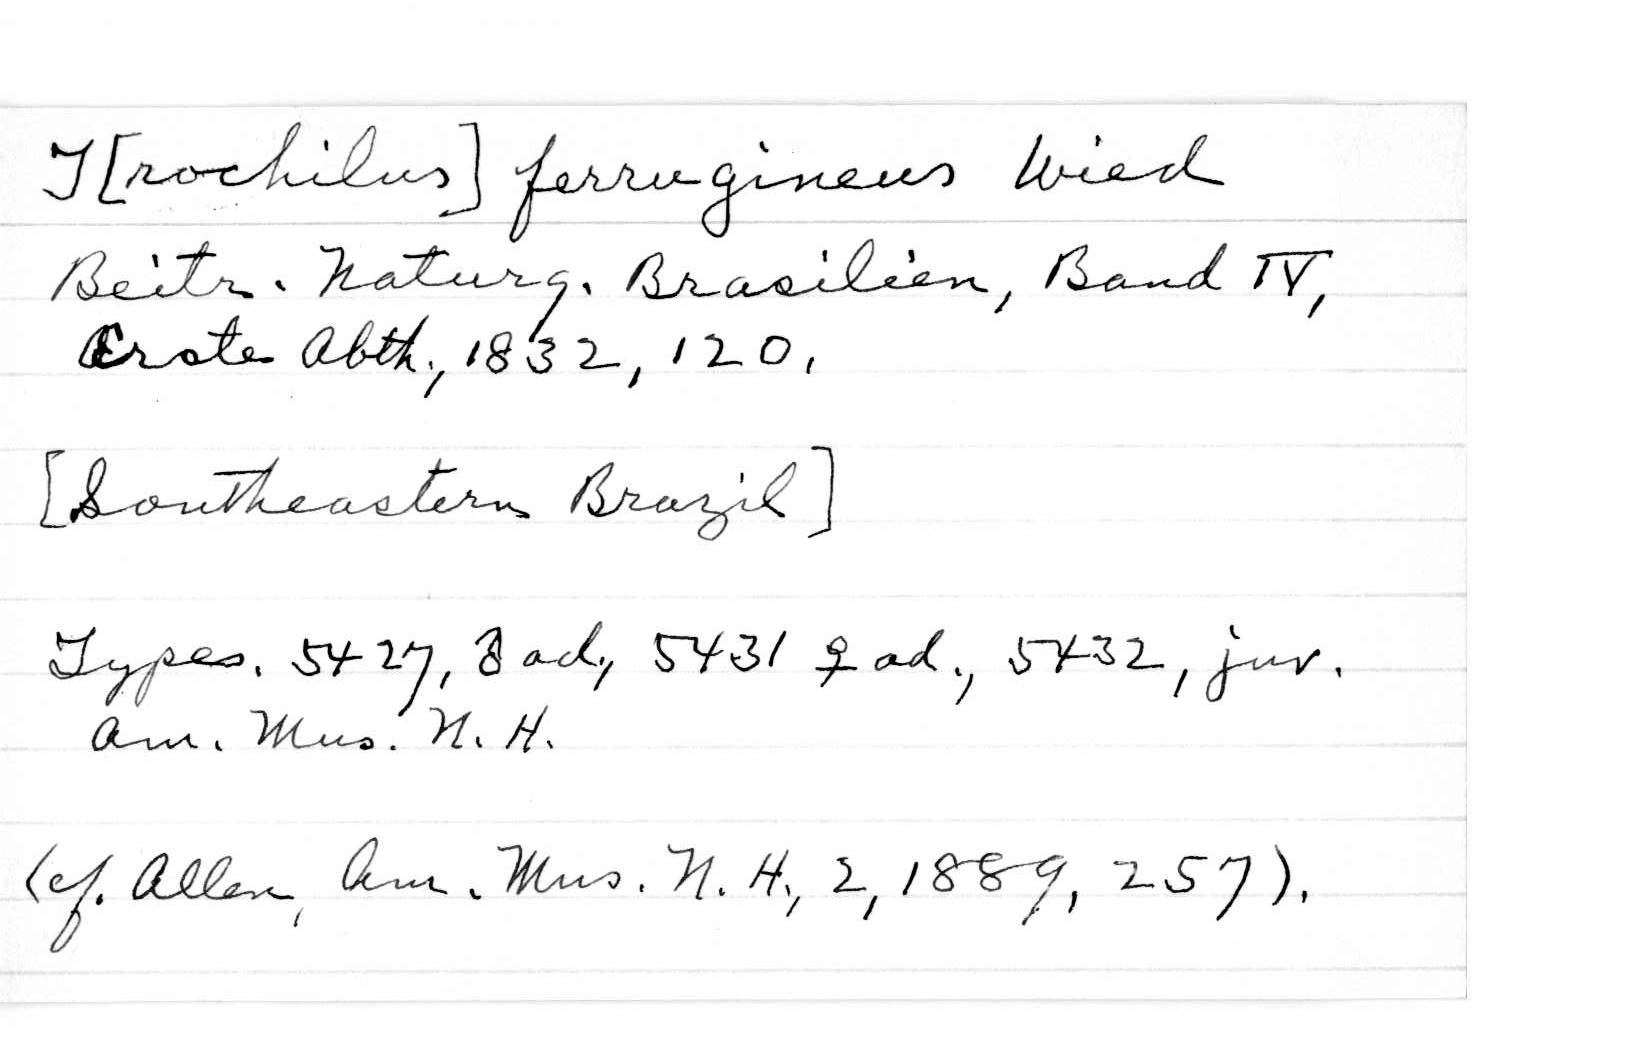 T[rochilus] ferrugineus Wied
Beitr. Naturg. Brasilien, Band IV,
Erste Abth., 1832, 120.
[Southeastern Brazil]
Types. 5427, ♂ ad., 5431 ♀ ad., 5432, juv.
Am. Mus. N. H.
(cf. Allen, Am. Mus. N. H., 2, 1889, 257).